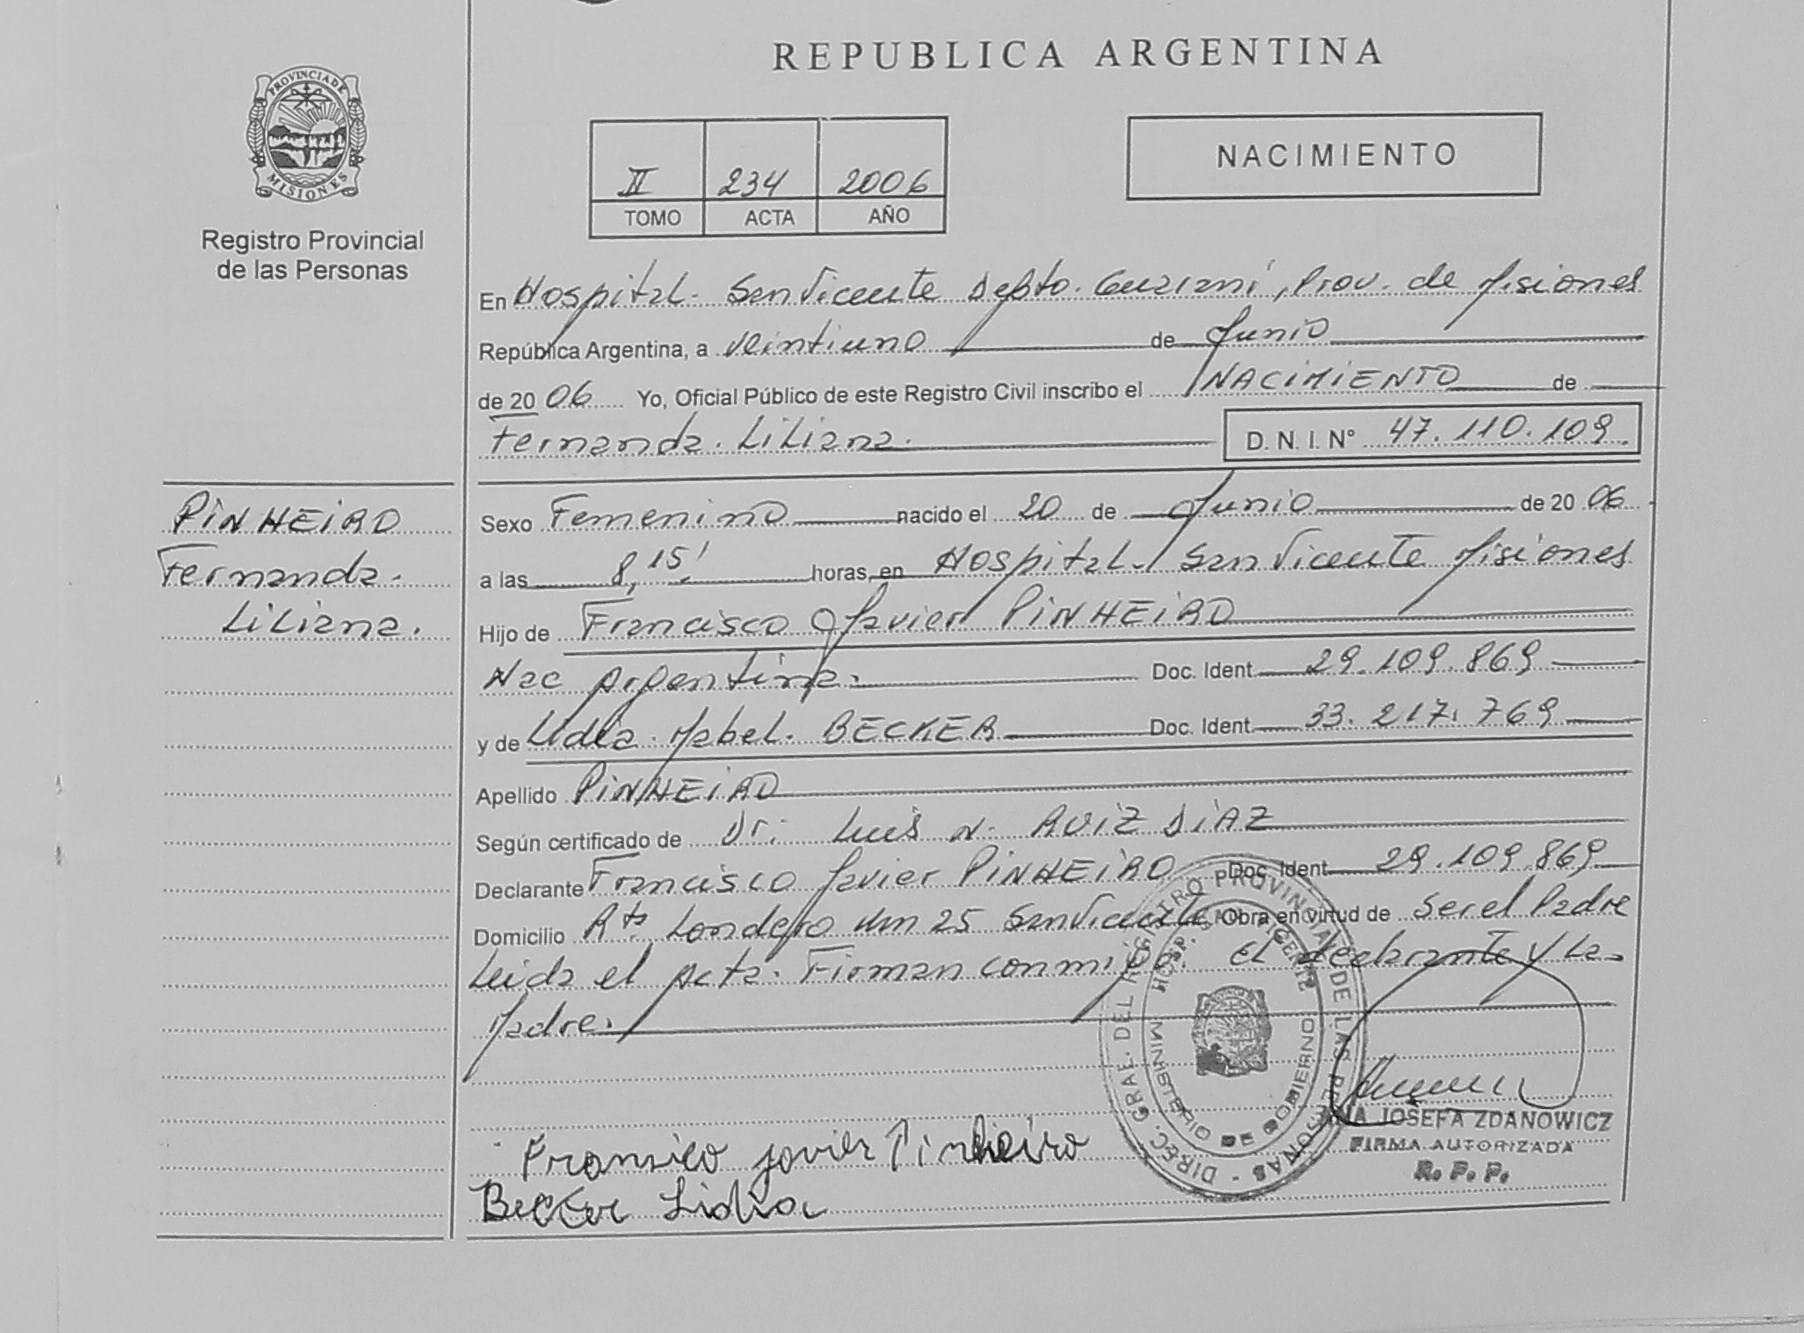 REPUBLICA ARGENTINA
PROVINCIA DE
MISIONES
Registro Provincial
de las Personas
II 234 2006
TOMO ACTA AÑO
NACIMIENTO
En Hospital. San Vicente Depto. Guarani, Prov. de Misiones
República Argentina, a veintiuno de Junio
de 2006 Yo, Oficial Público de este Registro Civil inscribo el NACIMIENTO de
Fernanda. Liliana. D. N. I. N° 47.110.109.
PINHEIRO
Fernanda.
Liliana.
Sexo Femenino nacido el 20 de Junio de 2006
a las 8,15' horas, en Hospital. San Vicente Misiones
Hijo de Francisco Javier PINHEIRO
Nac Argentina. Doc. Ident. 29.109.869
y de Lidia. Mabel. BECKER Doc. Ident. 33.217.769
Apellido PINHEIRO
Según certificado de Dr. Luis N. RUIZ DIAZ
Declarante Francisco Javier PINHEIRO Doc. Ident. 29.109.869
Domicilio Rta. Londero Km 25 San Vicente Obra en virtud de Ser el Padre
Leida el Acta. Firman conmigo. el declarante y la
Madre.
DIREC. GRAL. DEL REGISTRO PROVINCIAL DE LAS PERSONAS
HOSP. SAN VICENTE
MINISTERIO DE GOBIERNO
JOSEFA ZDANOWICZ
FIRMA AUTORIZADA
R. P. P.
Fransico javier Pinheiro
Becker Lidia